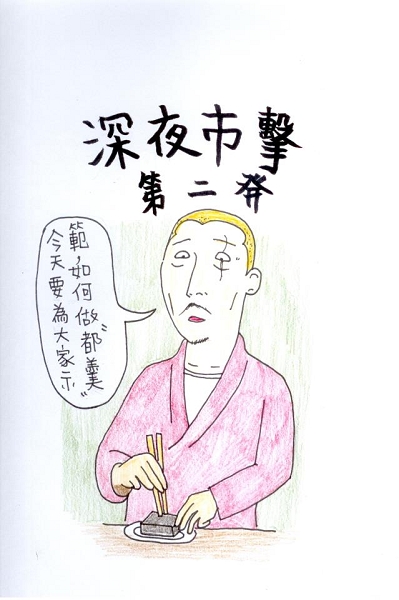 深夜市擊
第二発
今天要為大家示
範，如何做〝都羹〞